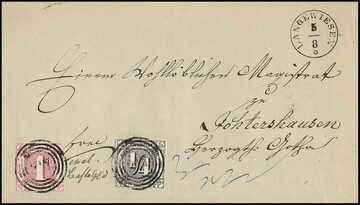 LANGEWIESEN
5
8
Einem Wohllöblichen Magistrat
zu
Ichtershausen
Herzogth. Gotha
1
1/4